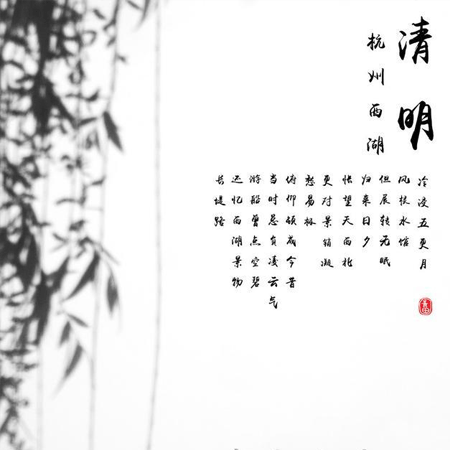 清明
杭州西湖
冷浸五更月
风枝水馆
但展转无眠
归来日夕
怅望天西北
更对景销凝
愁易极
俯仰顿成今昔
当时总负凌云气
游船曾点空碧
还忆西湖景物
长堤路